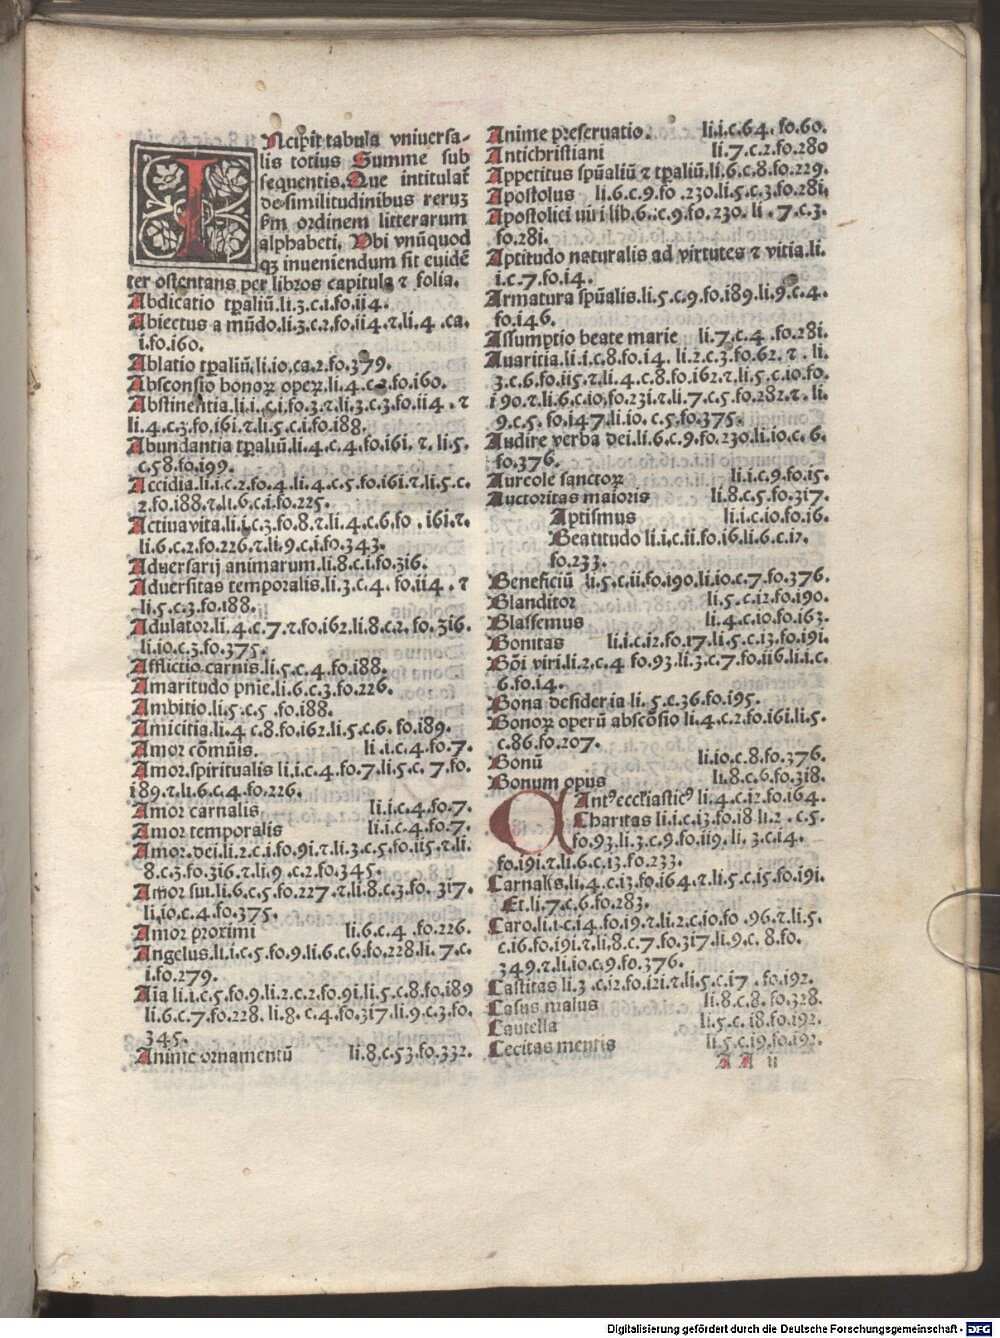 INcipit tabula vniuersa-
lis totius Summe sub
sequentis. Que intitulat᷑
de similitudinibus reruꝫ
ẜm ordinem litterarum
alphabeti. Vbi vnūquod
qꝫ inueniendum sit euidē
ter ostentans per libros capitula ⁊ folia.
Abdicatio tꝑaliū.li.3.c.i.fo.ii4.
Abiectus a mūdo.li.3.c.2.fo.ii4.⁊.li.4.ca.
i.fo.i60.
Ablatio tꝑaliū.li.io.ca.2.fo.379.
Absconsio bonoꝝ operꝝ.li.4.c.2.fo.i60.
Abstinentia.li.i.c.i.fo.3.⁊.li.3.c.3.fo.ii4.⁊
li.4.c.3.fo.i6i.⁊.li.5.c.i.fo.i88.
Abundantia tꝑaliū.li.4.c.4.fo.i6i.⁊.li.5.
c.58.fo.i99.
Accidia.li.i.c.2.fo.4.li.4.c.5.fo.i6i.⁊.li.5.c.
2.fo.i88.⁊.li.6.c.i.fo.225.
Actiua vita.li.i.c.3.fo.8.⁊.li.4.c.6.fo.i6i.⁊.
li.6.c.2.fo.226.⁊.li.9.c.i.fo.343.
Aduersarij animarum.li.8.c.i.fo.3i6.
Aduersitas temporalis.li.3.c.4.fo.ii4.⁊
li.5.c.3.fo.i88.
Adulator.li.4.c.7.⁊.fo.i62.li.8.c.2.fo.3i6.
li.io.c.3.fo.375.
Afflictio carnis.li.5.c.4.fo.i88.
Amaritudo pn̄ie.li.6.c.3.fo.226.
Ambitio.li.5.c.5.fo.i88.
Amicitia.li.4 c.8.fo.i62.li.5.c.6.fo.i89.
Amor cōmūis. li.i.c.4.fo.7.
Amor.spiritualis li.i.c.4.fo.7.li.5.c.7.fo.
i89.⁊.li.6.c.4.fo.226.
Amor carnalis li.i.c.4.fo.7.
Amor temporalis li.i.c.4.fo.7.
Amor.dei.li.2.c.i.fo.9i.⁊.li.3.c.5.fo.ii5.⁊.li.
8.c.3.fo.3i6.⁊.li.9.c.2.fo.345.
Amor sui.li.6.c.5.fo.227.⁊.li.8.c.3.fo.3i7.
li.io.c.4.fo.375.
Amor proximi li.6.c.4.fo.226.
Angelus.li.i.c.5.fo.9.li.6.c.6.fo.228.li.7.c.
i.fo.279.
Aīa li.i.c.5.fo.9.li.2.c.2.fo.9i.li.5.c.8.fo.i89
li.6.c.7.fo.228.li.8.c.4.fo.3i7.li.9.c.3.fo.
345.
Anime ornamentū li.8.c.53.fo.332.
Anime preseruatio. li.i.c.64.fo.60.
Antichristiani li.7.c.2.fo.280
Appetitus spūaliū ⁊ tꝑaliū.li.6.c.8.fo.229.
Apostolus li.6.c.9.fo.230.li.5.c.3.fo.28i.
Apostolici uiri lib.6.c.9.fo.230.li.7.c.3.
fo.28i.
Aptitudo naturalis ad virtutes ⁊ vitia.li.
i.c.7.fo.i4.
Armatura spūalis.li.5.c.9.fo.i89.li.9.c.4.
fo.i46.
Assumptio beate marie li.7.c.4.fo.28i.
Auaritia.li.i.c.8.fo.i4.li.2.c.3.fo.62.⁊.li.
3.c.6.fo.ii5.⁊.li.4.c.8.fo.i62.⁊.li.5.c.io.fo.
i90.⁊.li.6.c.io.fo.23i.⁊.li.7.c.5.fo.282.⁊.li.
9.c.5.fo.i47.li.io.c.5.fo.375.
Audire verba dei.li.6.c.9.fo.230.li.io.c.6.
fo.376.
Aureole sanctoꝝ li.i.c.9.fo.i5.
Auctoritas maioris li.8.c.5.fo.3i7.
Aptismus li.i.c.io.fo.i6.
Beatitudo li.i.c.ii.fo.i6.li.6.c.i7.
fo.233.
Beneficiū li.5.c.ii.fo.i90.li.io.c.7.fo.376.
Blanditor li.5.c.i2.fo.i90.
Blasfemus li.4.c.io.fo.i63.
Bonitas li.i.c.i2.fo.i7.li.5.c.i3.fo.i9i.
Bōi viri.li.2.c.4 fo.93.li.3.c.7.fo.ii6.li.i.c.
6.fo.i4.
Bona desideria li.5.c.36.fo.i95.
Bonoꝝ operū abscōsio li.4.c.2.fo.i6i.li.5.
c.86.fo.207.
Bonū li.io.c.8.fo.376.
Bonum opus li.8.c.6.fo.3i8.
CAntꝰ ecclīasticꝰ li.4.c.i2.fo.i64.
Charitas li.i.c.i3.fo.i8.li.2.c.5.
fo.93.li.3.c.9.fo.ii9.li.3.c.i4.
fo.i9i.⁊.li.6.c.i3.fo.233.
Carnalis.li.4.c.i3.fo.i64.⁊.li.5.c.i5.fo.i9i.
Et.li.7.c.6.fo.283.
Caro.li.i.c.i4.fo.i9.⁊.li.2.c.io.fo.96.⁊.li.5.
c.i6.fo.i9i.⁊.li.8.c.7.fo.3i7.li.9.c.8.fo.
349.⁊.li.io.c.9.fo.376.
Castitas li.3.c.i2.fo.i2i.⁊.li.5.c.i7.fo.i92.
Casus malus li.8.c.8.fo.328.
Cautella li.5.c.i8.fo.i92.
Cecitas mentis li.5.c.i9.fo.i92.
A A ii
Digitalisierung gefördert durch die Deutsche Forschungsgemeinschaft - DFG